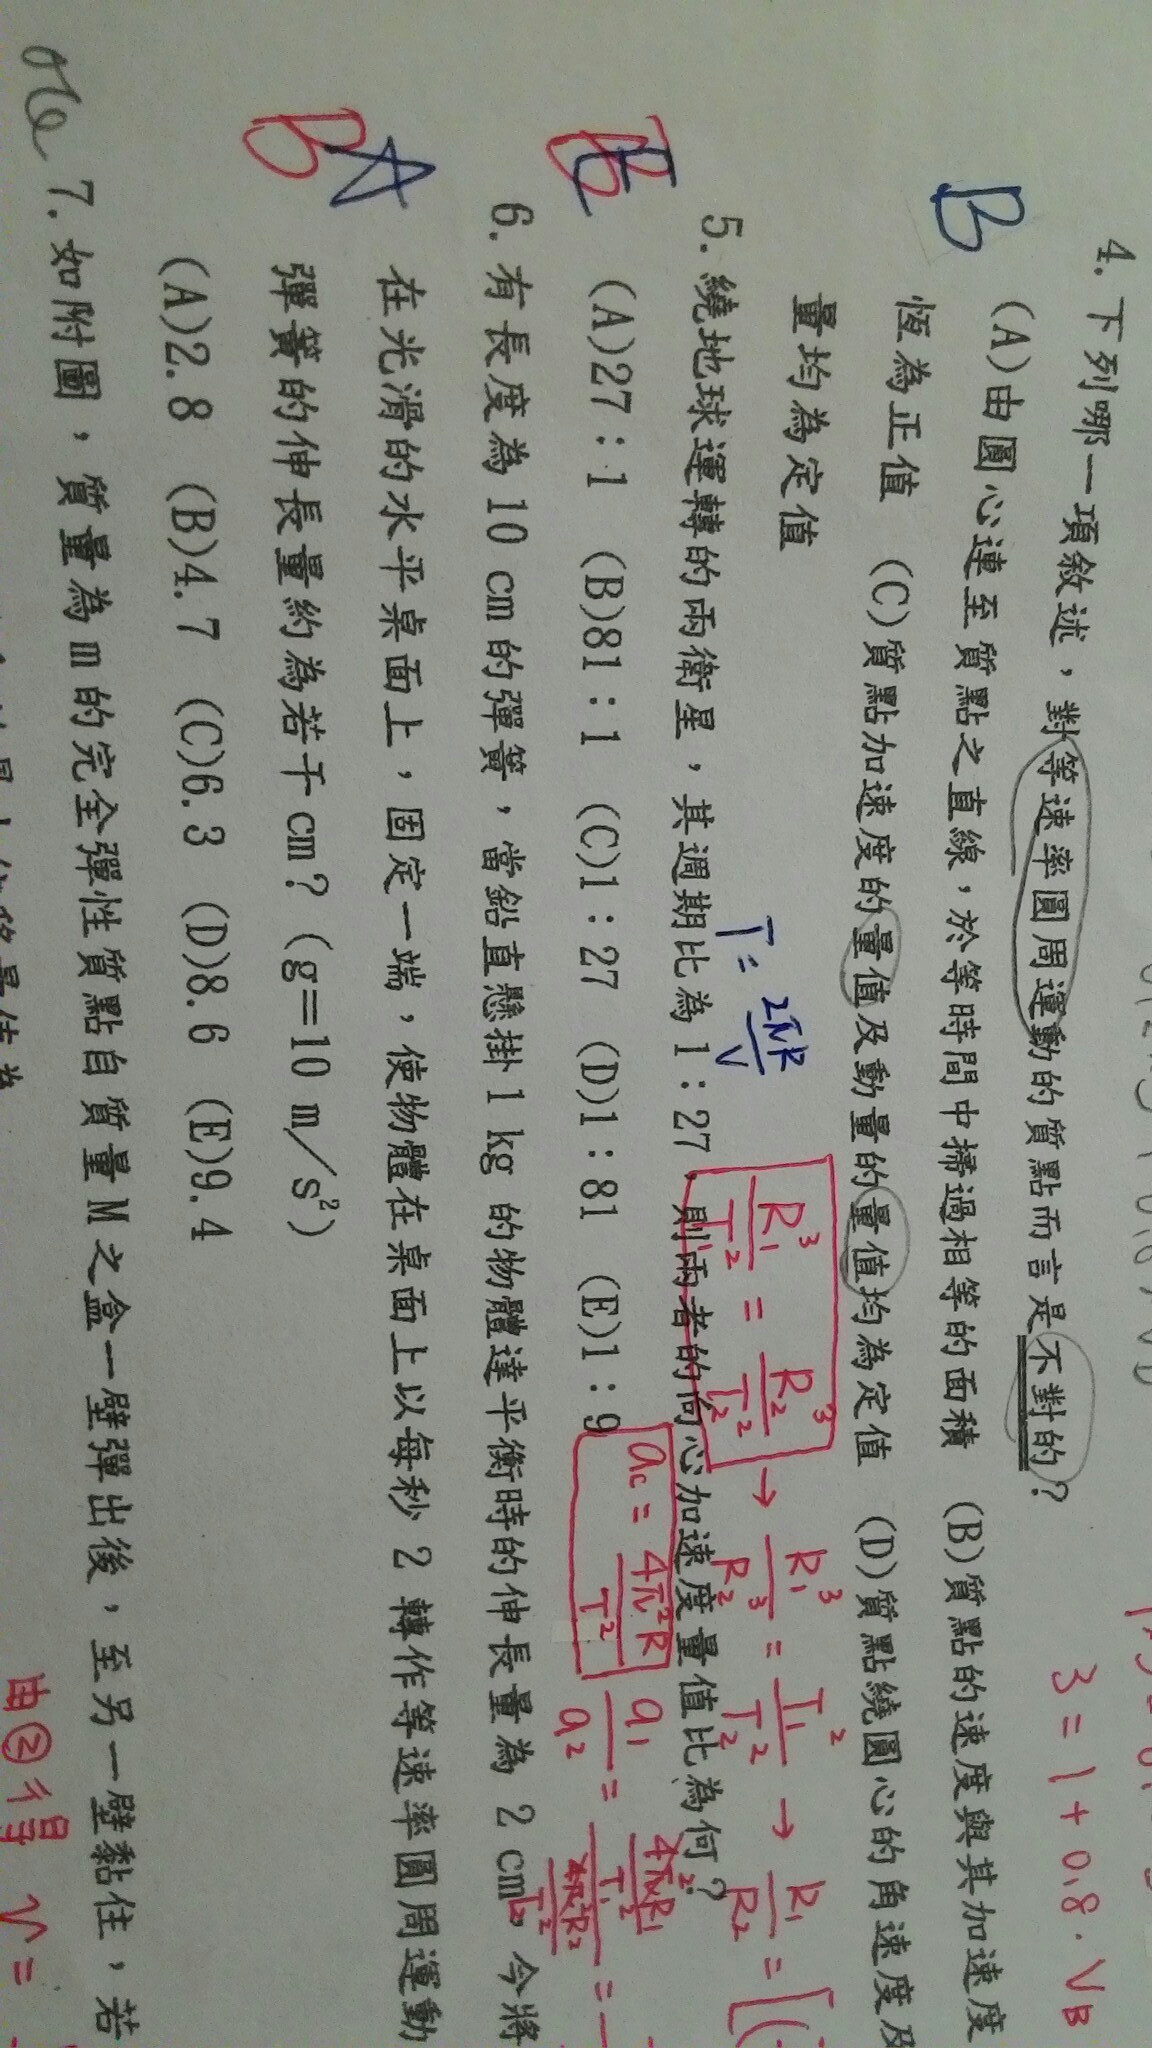 3 = 1 + 0.8 · VB
B
4. 下列哪一項敘述，對等速率圓周運動的質點而言是不對的？
(A)由圓心連至質點之直線，於等時間中掃過相等的面積　(B)質點的速度與其加速度
恆為正值　(C)質點加速度的量值及動量的量值均為定值　(D)質點繞圓心的角速度及
量均為定值
T = 2πR/V
R₁³/T₁² = R₂³/T₂² → R₁³/R₂³ = T₁²/T₂² → R₁/R₂ =
E
5. 繞地球運轉的兩衛星，其週期比為 1：27，則兩者的向心加速度量值比為何？
(A)27：1　(B)81：1　(C)1：27　(D)1：81　(E)1：9
ac = 4π²R/T²
a₁/a₂ = 4π²R₁/T₁² / 4π²R₂/T₂² =
A
B
6. 有長度為 10 cm 的彈簧，當鉛直懸掛 1 kg 的物體達平衡時的伸長量為 2 cm。今將
在光滑的水平桌面上，固定一端，使物體在桌面上以每秒 2 轉作等速率圓周運動
彈簧的伸長量約為若干 cm？(g＝10 m／s²)
(A)2.8　(B)4.7　(C)6.3　(D)8.6　(E)9.4
7. 如附圖，質量為 m 的完全彈性質點自質量 M 之盒一壁彈出後，至另一壁黏住，若
由②得 V =